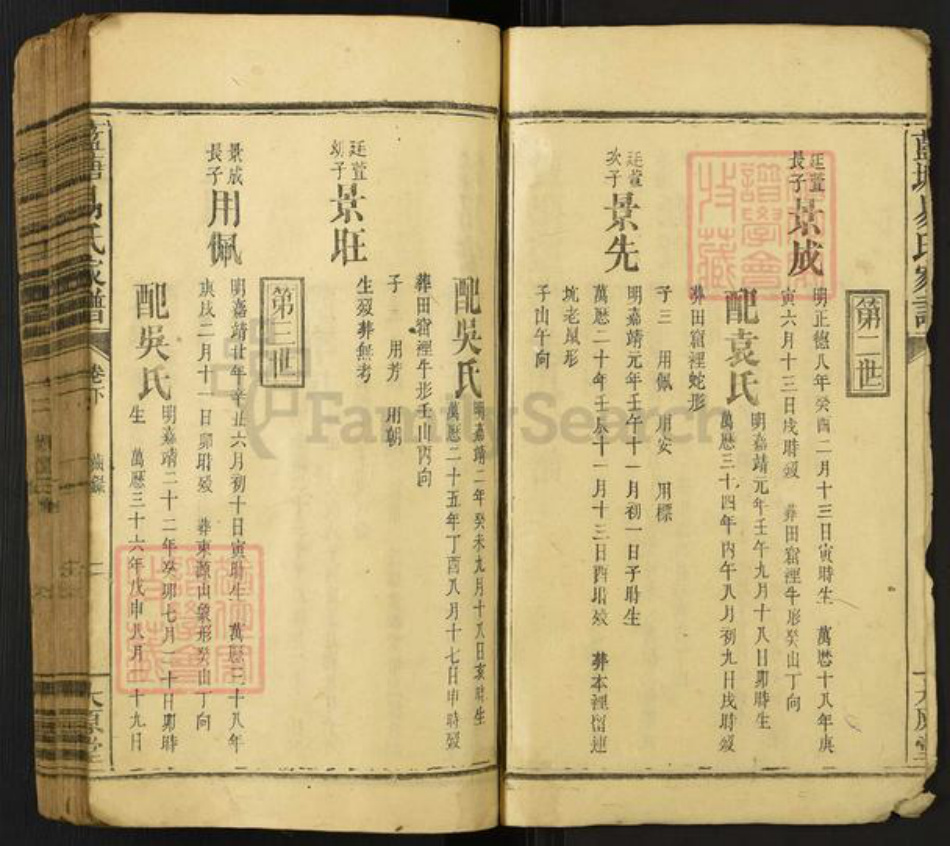 第二世
廷萱長子景成
明正德八年癸酉二月十三日寅時生 萬曆十八年庚
寅六月十三日戌時歿 葬田窟裡牛形癸山丁向
配袁氏
明嘉靖元年壬午九月十八日卯時生
萬曆三十四年丙午八月初九日戌時歿
葬田窟裡蛇形
子三 用佩 用安 用標
廷萱次子景先
明嘉靖元年壬午十一月初一日子時生
萬曆二十年壬辰十一月十三日酉時歿 葬本裡
坑老鼠形
子山午向
配吳氏
明嘉靖二年癸未九月十八日亥時生
萬曆二十五年丁酉八月十七日申時歿
葬田窟裡牛形壬山丙向
子 用芳 用朝
廷萱幼子景旺
生歿葬無考
第三世
景成長子用佩
明嘉靖廿年辛丑六月初十日寅時生 萬曆三十八年
庚戌二月十一日卯時歿 葬東源山象形癸山丁向
配吳氏
明嘉靖二十二年癸卯七月二十日卯時
生 萬曆三十六年戊申八月二十九日
氏家譜
卷下
FamilySearch